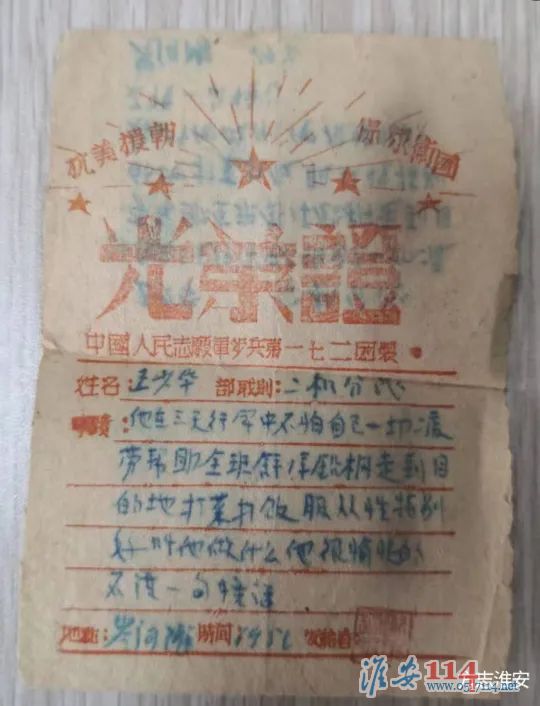 抗美援朝 保家衛國
光荣證
中國人民志願軍步兵第一七二团製
姓名:王少华 部职别:二机分队
事蹟:他在三天行军中不怕自己一切疲
劳帮助全班鲜 枪桐走到目
的地打菜打饭服从性特别
好叫他做什么他很愉快的
不说一句
地點: 河 時间:1951 发给者:
淮安114网
www.0517114.net
方志淮安